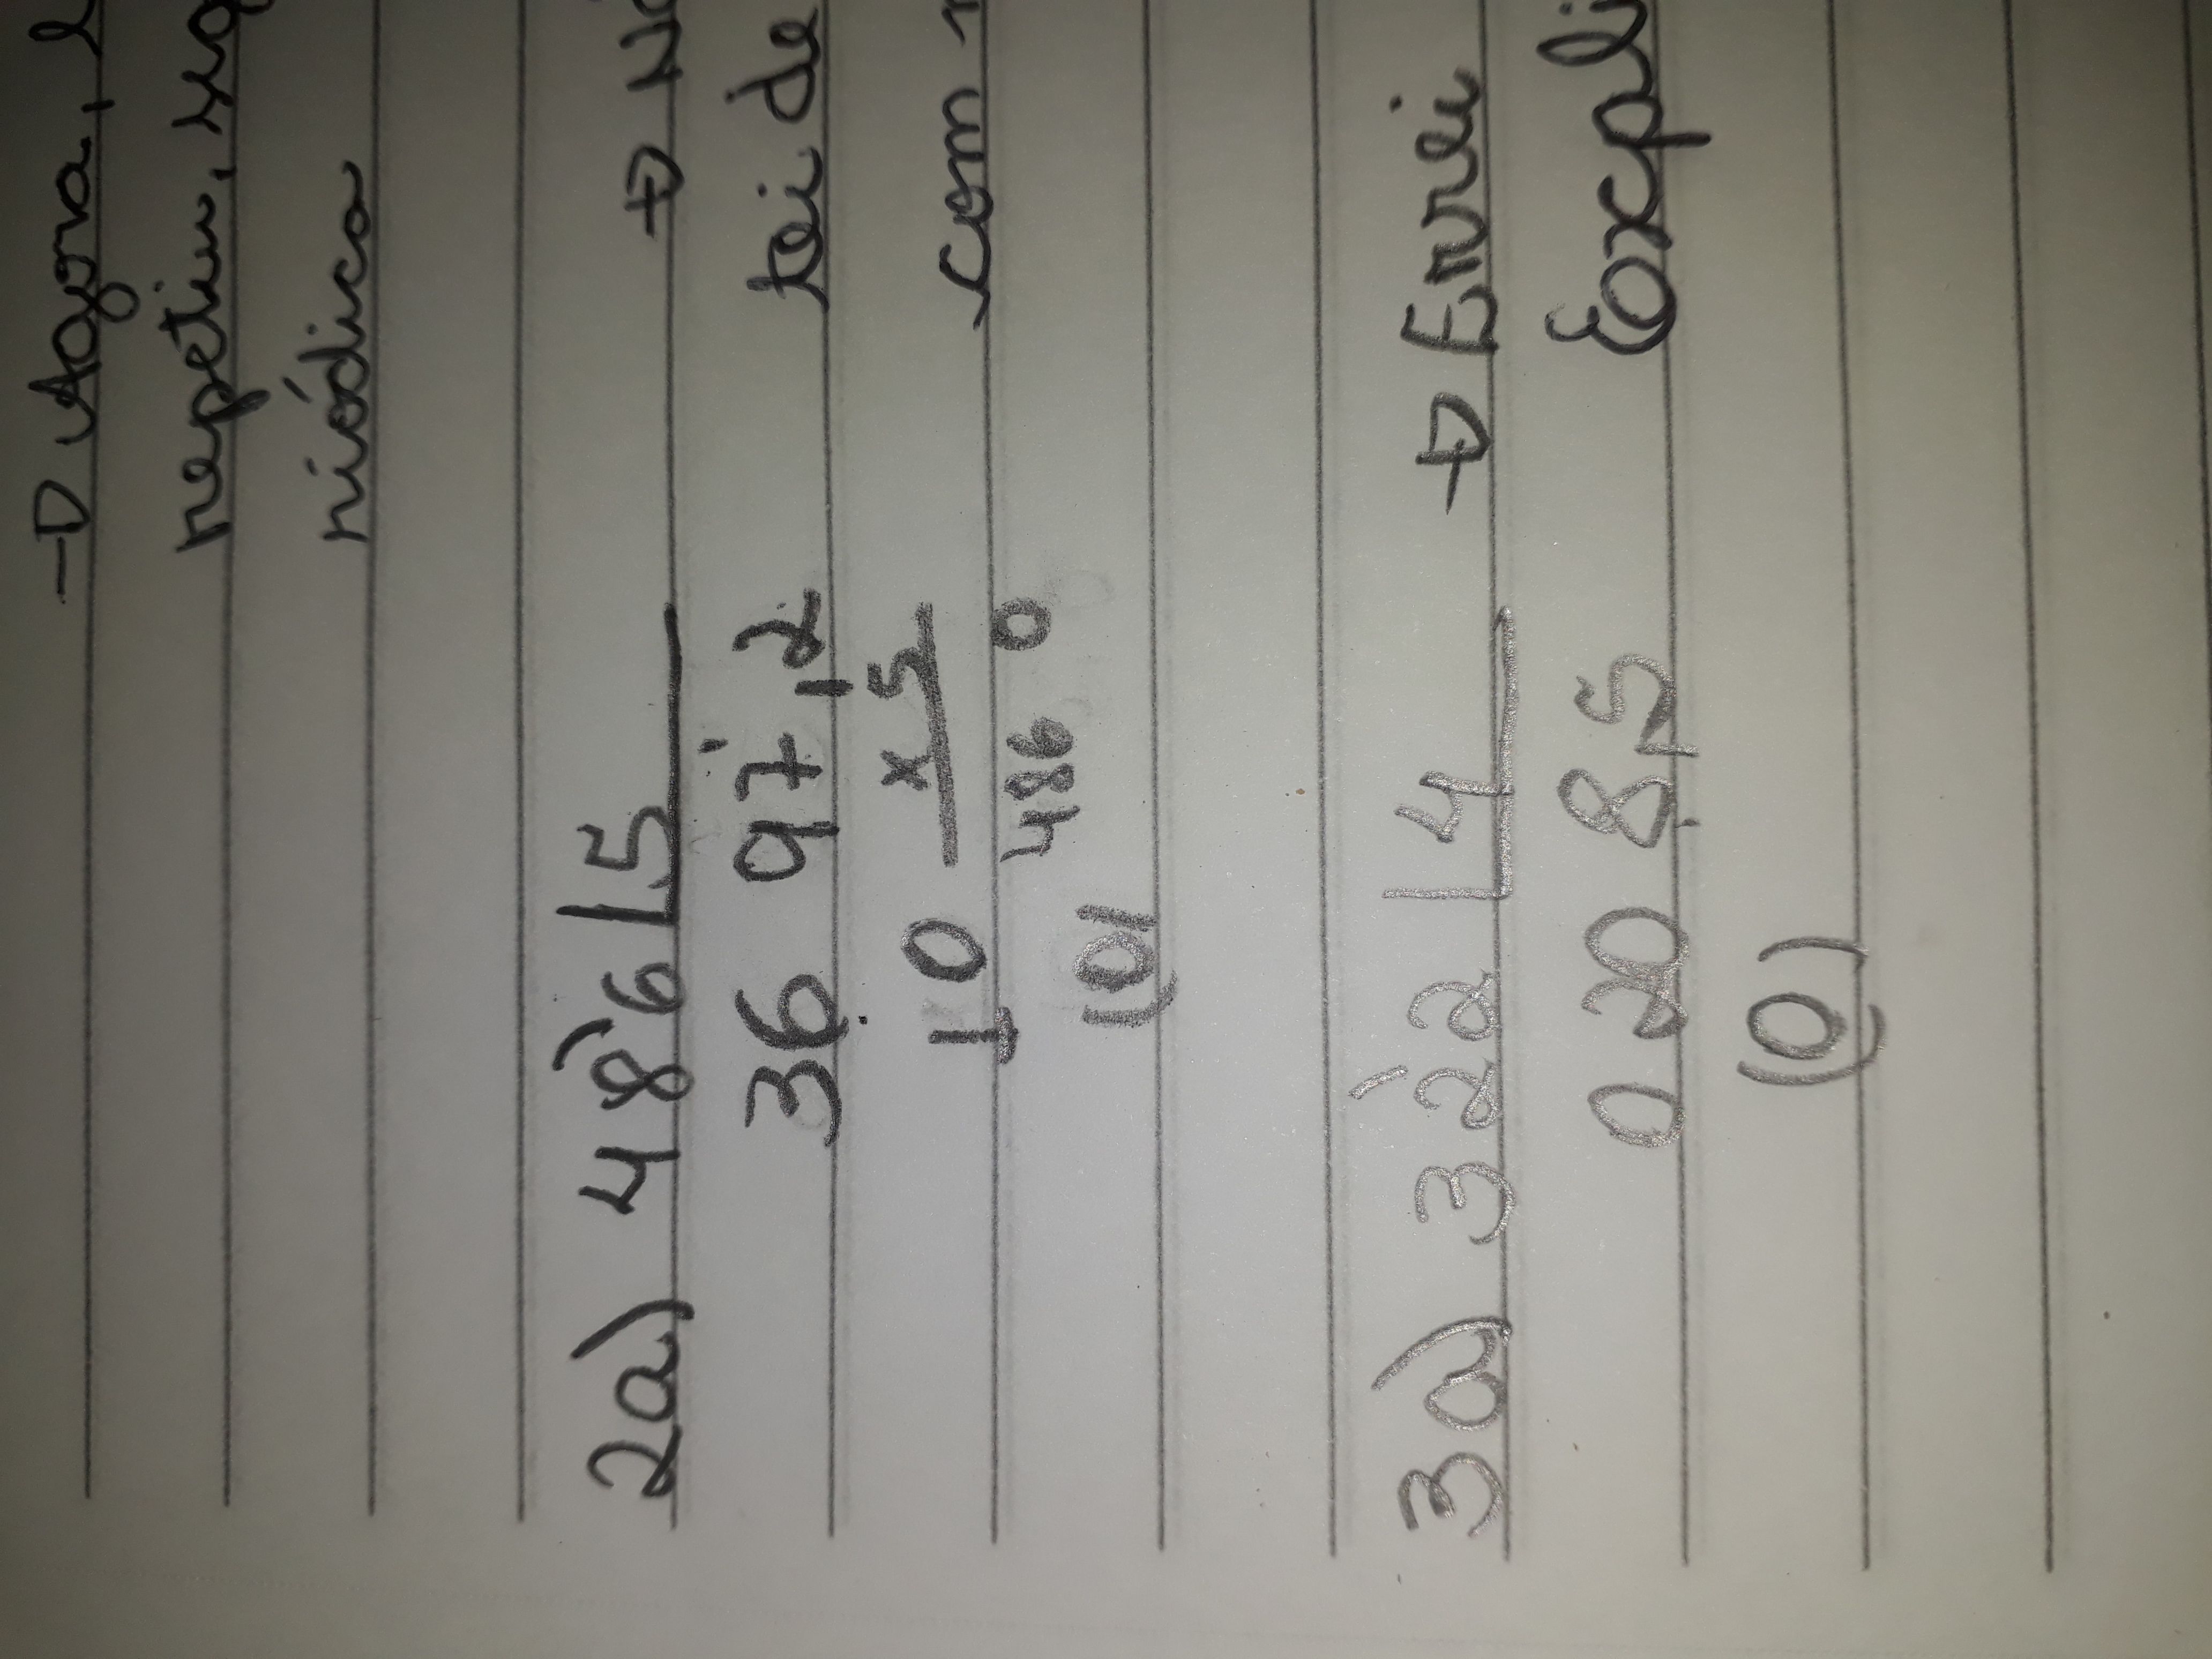 → Agora,
repetiu,
riódica
2a) 486 |5
36 97,2
10 x 5
(0) 486 0
→
tei de
com
3a) 322 |4
0 20 8,5
(0)
→ Errei
Expli